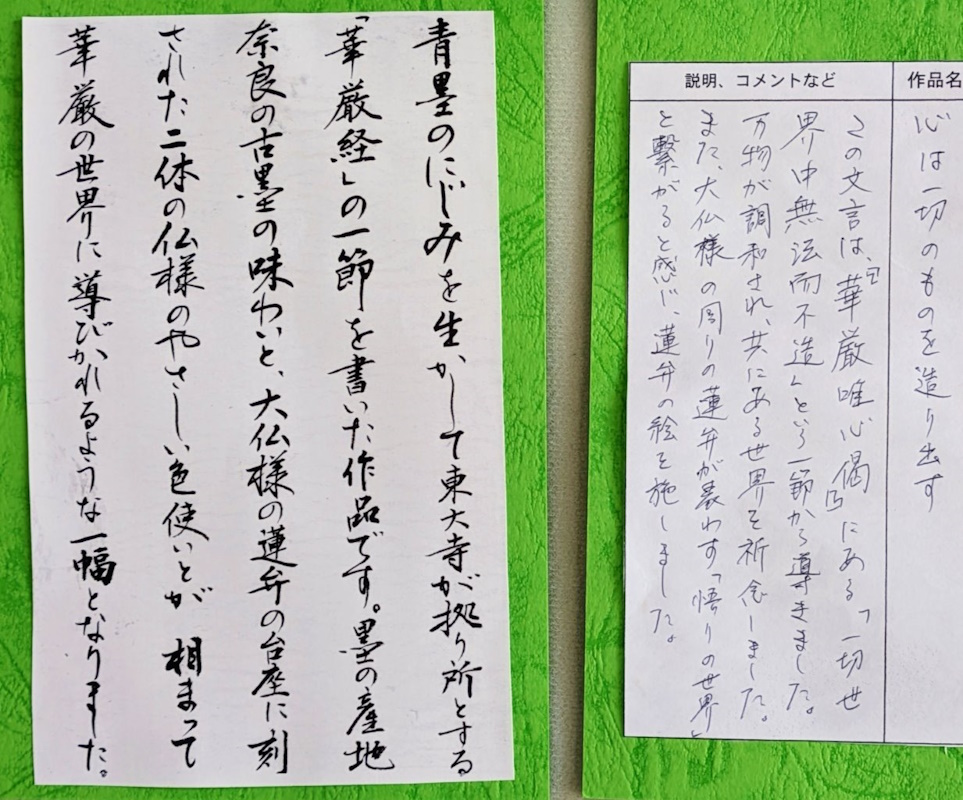 青墨のにじみを生かして東大寺が拠り所とする
「華厳経」の一節を書いた作品です。墨の産地
奈良の古墨の味わいと、大仏様の蓮弁の台座に刻
された二体の仏様のやさしい色使いとが 相まって
華厳の世界に導びかれるような一幅となりました。
作品名
心は一切のものを造り出す
説明、コメントなど
この文言は、『華厳唯心偈』にある「一切世
界中無法而不造」という一節から導きました。
万物が調和され、共にある世界を祈念しました。
また、大仏様の周りの蓮弁が表わす「悟りの世界」
と繋がると感じ、蓮弁の絵を施しました。